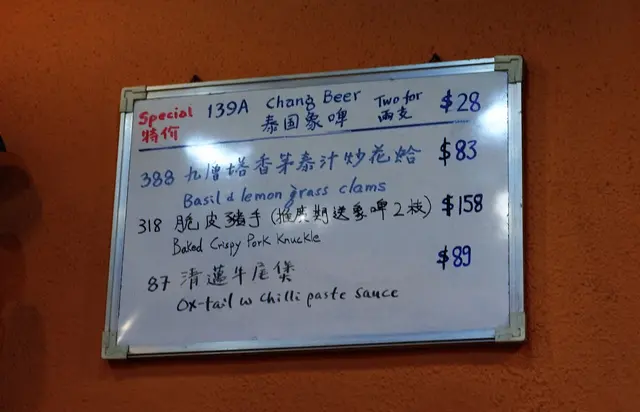 Special 139A Chang Beer Two for $28
特价 泰国象啤 兩支
388 九層塔香茅泰汁炒花蛤 $83
Basil & lemon grass clams
318 脆皮豬手(推廣期送象啤2枝) $158
Baked Crispy Pork Knuckle
87 清邁牛尾煲 $89
Ox-tail w chilli paste sauce